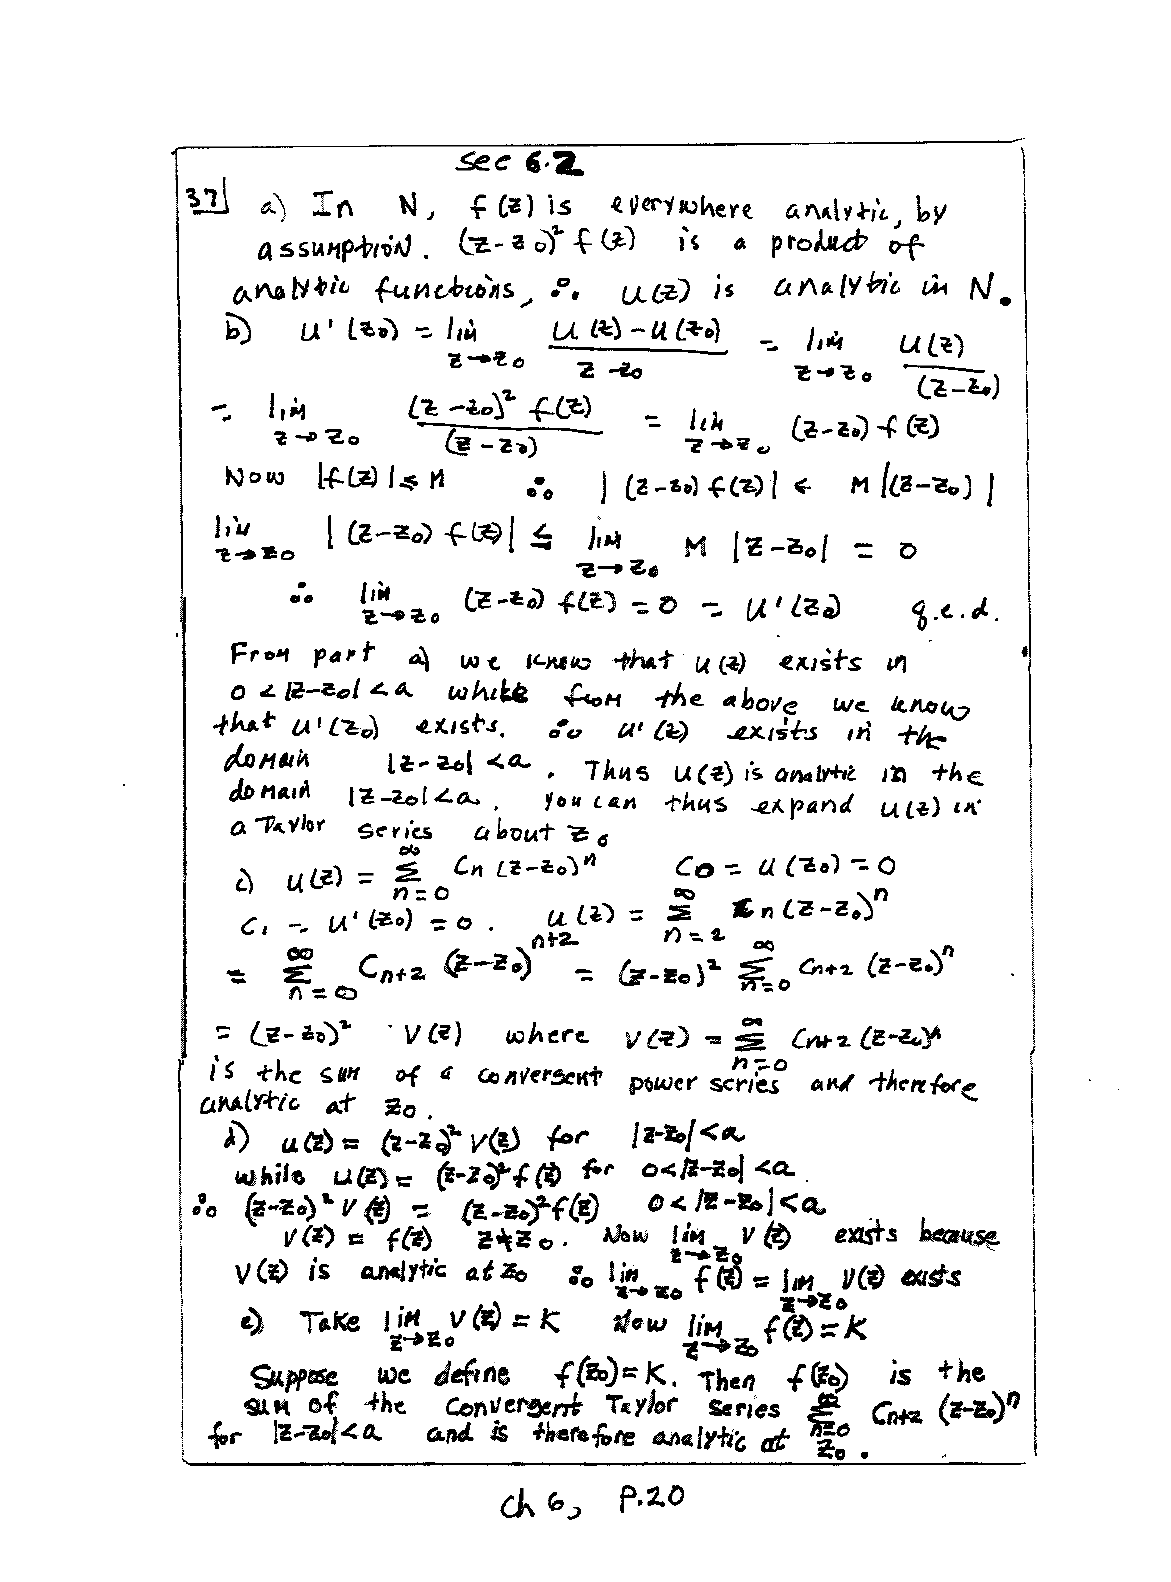 sec 6.2
37 a) In N, f(z) is everywhere analytic, by
assumption. (z-z₀)² f(z) is a product of
analytic functions, ∴ u(z) is analytic in N.
b) u'(z₀) = lim_{z→z₀} (u(z)-u(z₀))/(z-z₀) = lim_{z→z₀} u(z)/(z-z₀)
= lim_{z→z₀} (z-z₀)² f(z)/(z-z₀) = lim_{z→z₀} (z-z₀) f(z)
Now |f(z)| ≤ M ∴ |(z-z₀) f(z)| ≤ M |(z-z₀)|
lim_{z→z₀} |(z-z₀) f(z)| ≤ lim_{z→z₀} M |z-z₀| = 0
∴ lim_{z→z₀} (z-z₀) f(z) = 0 = u'(z₀) q.e.d.
From part a) we know that u(z) exists in
0<|z-z₀|<a while from the above we know
that u'(z₀) exists. ∴ u'(z) exists in the
domain |z-z₀|<a. Thus u(z) is analytic in the
domain |z-z₀|<a. You can thus expand u(z) in
a Taylor series about z₀
c) u(z) = ∑_{n=0}^∞ Cn (z-z₀)ⁿ C₀ = u(z₀) = 0
C₁ = u'(z₀) = 0. u(z) = ∑_{n=2}^∞ Cn (z-z₀)ⁿ
= ∑_{n=0}^∞ C_{n+2} (z-z₀)^{n+2} = (z-z₀)² ∑_{n=0}^∞ C_{n+2} (z-z₀)ⁿ
= (z-z₀)² V(z) where V(z) = ∑_{n=0}^∞ C_{n+2} (z-z₀)ⁿ
is the sum of a convergent power series and therefore
analytic at z₀.
d) u(z) = (z-z₀)² V(z) for |z-z₀|<a
while u(z) = (z-z₀)² f(z) for 0<|z-z₀|<a
∴ (z-z₀)² V(z) = (z-z₀)² f(z) 0<|z-z₀|<a
V(z) = f(z) z≠z₀. Now lim_{z→z₀} V(z) exists because
V(z) is analytic at z₀ ∴ lim_{z→z₀} f(z) = lim_{z→z₀} V(z) exists
e) Take lim_{z→z₀} V(z) = K Now lim_{z→z₀} f(z) = K
Suppose we define f(z₀)=K. Then f(z₀) is the
sum of the convergent Taylor series ∑_{n=0}^∞ C_{n+2} (z-z₀)ⁿ
for |z-z₀|<a and is therefore analytic at z₀.
Ch 6, P.20